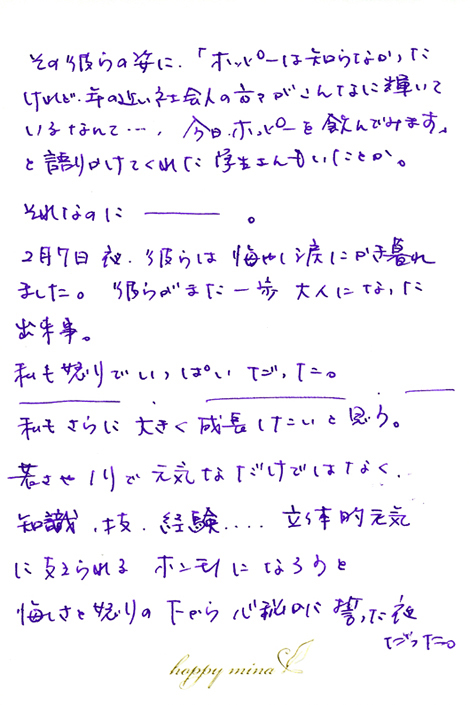 その彼らの姿に、「ホッピーは知らなかった
けれど、年の近い社会人の方々がこんなに輝いて
いるなんて…、今日、ホッピーを飲んでみます」
と語りかけてくれた学生さんもいたことか。
それなのに ――― 。
2月7日 夜、彼らは悔やし涙にかき暮れ
ました。彼らがまた一歩 大人になった
出来事。
私も怒りでいっぱいだった。
私もさらに大きく成長したいと思う。
若さやノリで元気なだけではなく、
知識、技、経験.... 立体的元気
に支えられる ホンモノになろうと
悔しさと怒りの下から 心秘めに誓った夜
だった。
happy mina